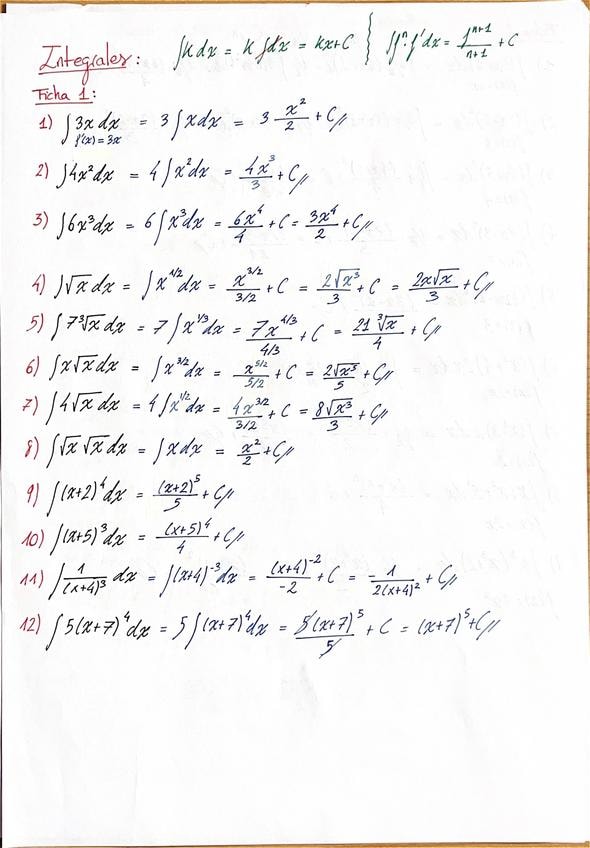 Integrales: ∫k dx = k∫dx = kx+C { ∫fⁿ·f' dx = fⁿ⁺¹/n+1 + C
Ficha 1:
1) ∫3x dx = 3∫x dx = 3 x²/2 + C//
f'(x) = 3x
2) ∫4x² dx = 4∫x² dx = 4x³/3 + C//
3) ∫6x³ dx = 6∫x³ dx = 6x⁴/4 + C = 3x⁴/2 + C//
4) ∫√x dx = ∫x^1/2 dx = x^3/2 / 3/2 + C = 2√x³/3 + C = 2x√x/3 + C//
5) ∫7∛x dx = 7∫x^1/3 dx = 7x^4/3 / 4/3 + C = 21∛x/4 + C//
6) ∫x√x dx = ∫x^3/2 dx = x^5/2 / 5/2 + C = 2√x⁵/5 + C//
7) ∫4√x dx = 4∫x^1/2 dx = 4x^3/2 / 3/2 + C = 8√x³/3 + C//
8) ∫√x √x dx = ∫x dx = x²/2 + C//
9) ∫(x+2)⁴ dx = (x+2)⁵/5 + C//
10) ∫(x+5)³ dx = (x+5)⁴/4 + C//
11) ∫1/(x+4)³ dx = ∫(x+4)⁻³ dx = (x+4)⁻²/-2 + C = -1/2(x+4)² + C//
12) ∫5(x+7)⁴ dx = 5∫(x+7)⁴ dx = 5(x+7)⁵/5 + C = (x+7)⁵ + C//